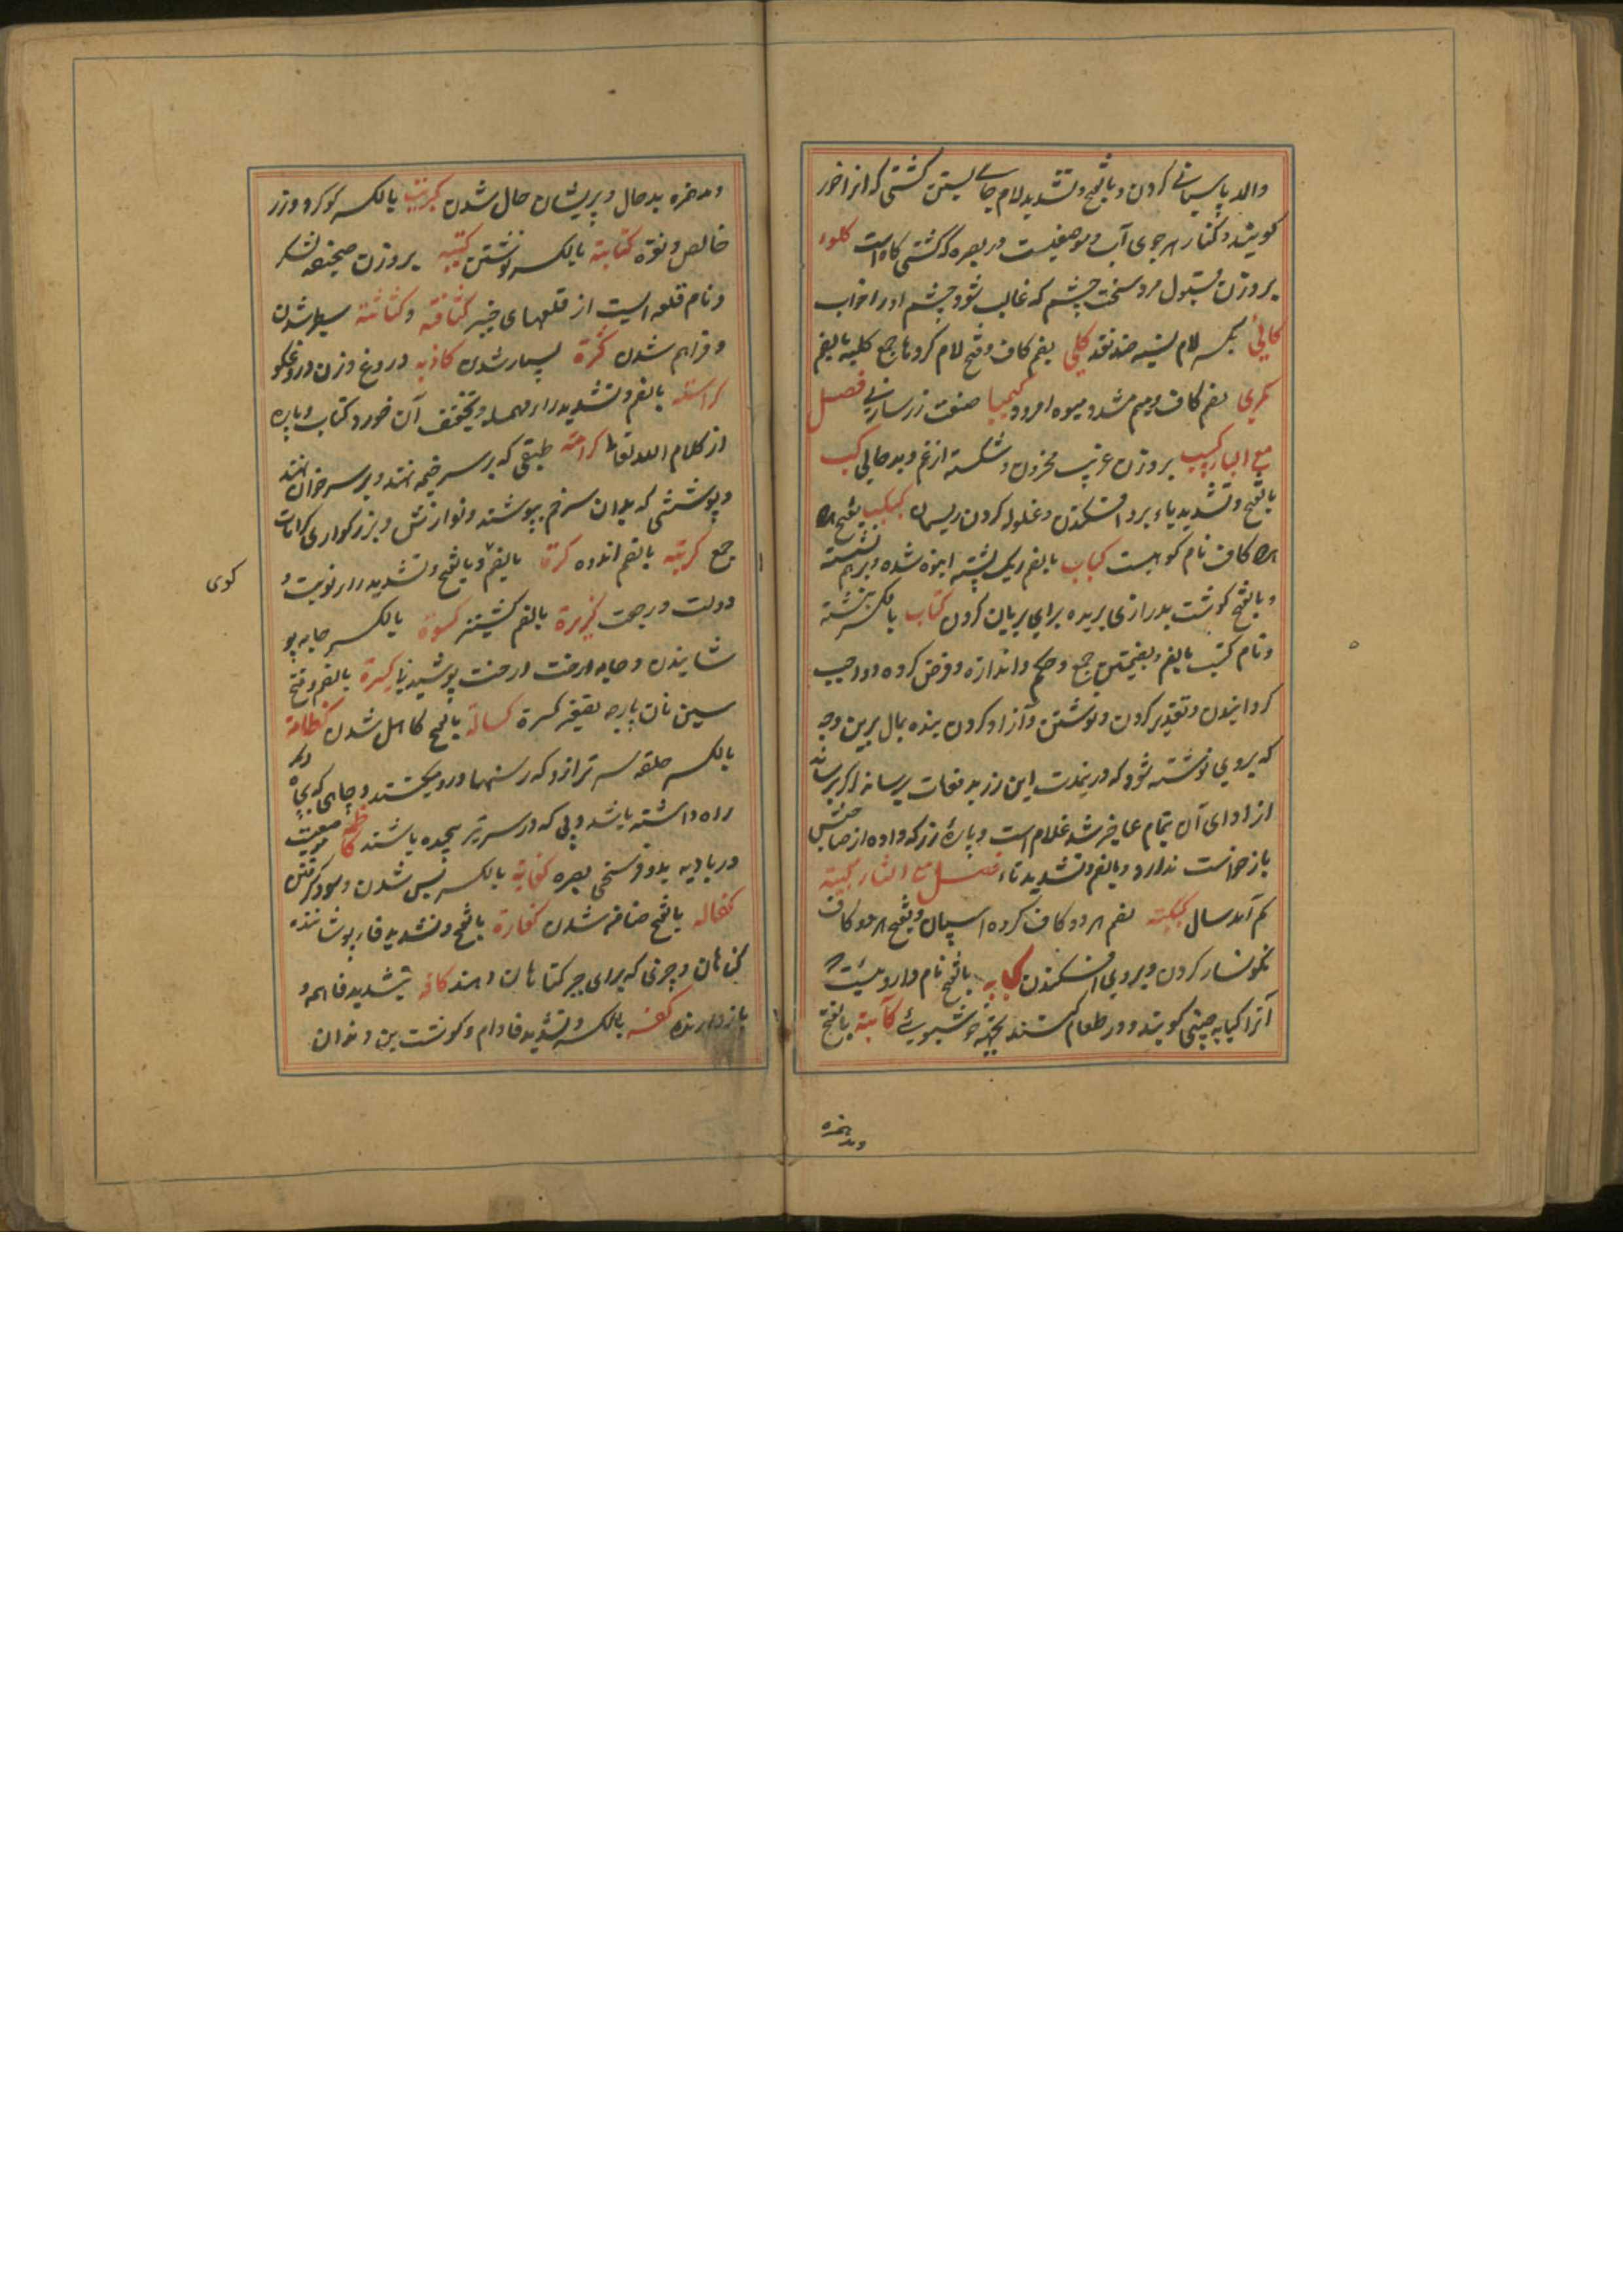 والمد پاسبانی کردن و بالفتح و تشدید لام جای بستن کشتی که انرا خور
کویند و کنار هر جوی آب و موضعیست در بصره که کشتی کاه است کلوء
بروزن قبول مرد سخت چشم که غالب نشود چشم او را خواب
کالئ بکسر لام نسیه ضد نقد کلی بضم کاف و فتح لام کردها جمع کلیه بالضم
کمثری بضم کاف و میم مشدد میوه امرود کیمیا صنعت زرسازی فصل
مع الباء کئیب بروزن غریب محزون و شکسته از غم و بدحالی کب
بالفتح و تشدید باء برو افکندن و غلوله کردن ریسمان کبکب بفتح هر
هر کاف نام کوهیست کباب بالضم ریک پشته انبوه شده و برهم نشسته
و بالفتح کوشت بدرازی بریده برای بریان کردن کتاب بالکسر نبشته
و نام کتب بالضم و بضمتین جمع و حکم و اندازه و فرض کرده و واجب
کردانیدن و تقدیر کردن و نوشتن و آزاد کردن بنده بمال برین وجه
که بروی نوشته شود که در نمدت این زر بدفعات برساند اکر برساند
از ادای آن تمام عاجز شد غلام است و پارۀ زر که داده از صاحبش
بازخواست ندارد و بالضم و تشدید تاء فصل مع التاء کبیته
کم آمد سال کبکبته بضم هر دو کاف کروه اسپان و بفتح هر دو کاف
نکونسار کردن و بروی افکندن کبابه بالفتح نام داروییست
آنرا کبابه چینی کویند و در طعام کنند بجهة خوشبویی کآبته بالفتح
ومدهمزه
ومدهمزه بدحال و پریشان حال شدن کبریت بالکسر کوکرد و زر
خالص و نقره کتابته بالکسر نوشتن کتیبه بروزن صحیفه لشکر
و نام قلعه ایست از قلعهای خیبر کثافته و کثاثته سطبر شدن
و فراهم شدن کثرة بسیار شدن کاذبه دروغ و زن دروغکو
کراسته بالضم و تشدید راء مهمله و تخفیف آن خورد کتاب و پاره
از کلام الله تعالی کرامته طبقی که بر سر خیمه نهند و بر سر خوان نهند
و پوششی که بدان سر خم بپوشند و نوازش و بزرکواری کرامات
جمع کربته بالضم اندوه کرة بالضم و بالفتح و تشدید راء نوبت و
کوی
دولت و رجعت کزبرة بالضم کشنیز کسوة بالکسر جامه پو
شانیدن و جامه و رخت پوشیدنیها کسرة بالضم و فتح
سین نان پارچه تصغیر کسرة کسالة بالفتح کاهل شدن کظامة
بالکسر حلقه سر ترازو که رسنها درو میکشند و چاهی که بچاه دیکر
راه داشته باشد و پی که در سر تیر پیچیده باشند کاظمه موضعیست
در بادیه بدو فرسخی بصره کفایة بالکسر بس شدن و سود کرفتن
کفاله بالفتح ضامن شدن کفارة بالفتح و تشدید فاء پوشاننده
کناهان و چیزی که برای جبر کناهان دهند کافه بتشدید فا همه و
بازدارنده کفه بالکسر و تشدید فا دام و کوشت بن دندان